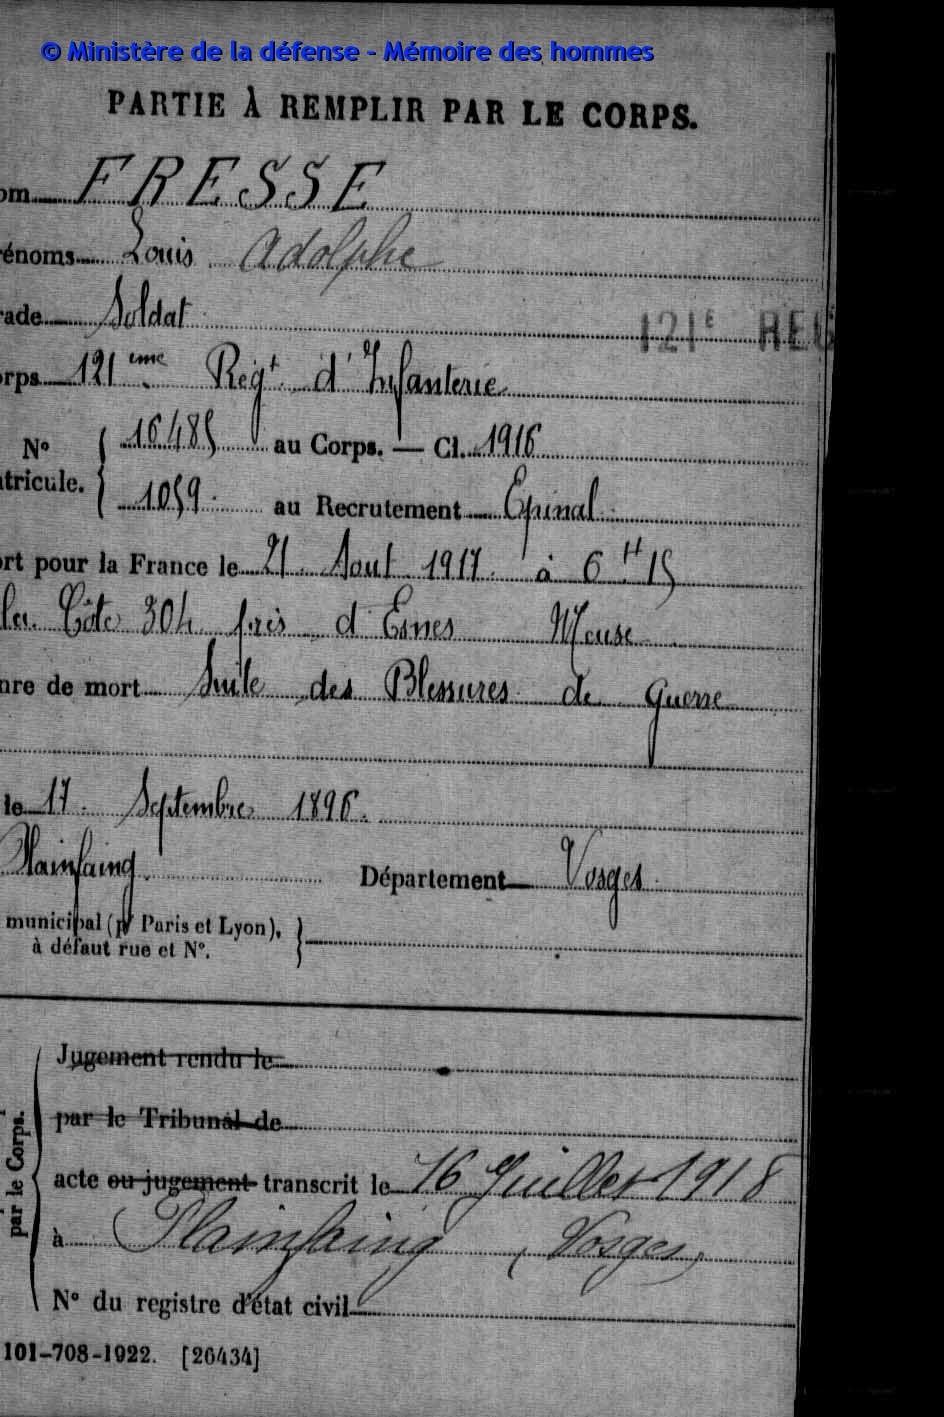 © Ministère de la défense - Mémoire des hommes
PARTIE À REMPLIR PAR LE CORPS.
om FRESSE
rénoms Louis Adolphe
rade Soldat
121E REG
orps 121 ème Régt d'Infanterie
No { 16485 au Corps. — Cl. 1916
atricule. { 1059 au Recrutement Epinal
ort pour la France le 21 Aout 1917 à 6 H 15
la Côte 304 près d'Esnes Meuse
nre de mort Suite des Blessures de Guerre
le 17 Septembre 1896.
Plainfaing Département Vosges
municipal (pr Paris et Lyon),
à défaut rue et No.
par le Corps.
Jugement rendu le
par le Tribunal de
acte ou jugement transcrit le 16 Juillet 1918
à Plainfaing (Vosges)
No du registre d'état civil
101-708-1922. [26434]